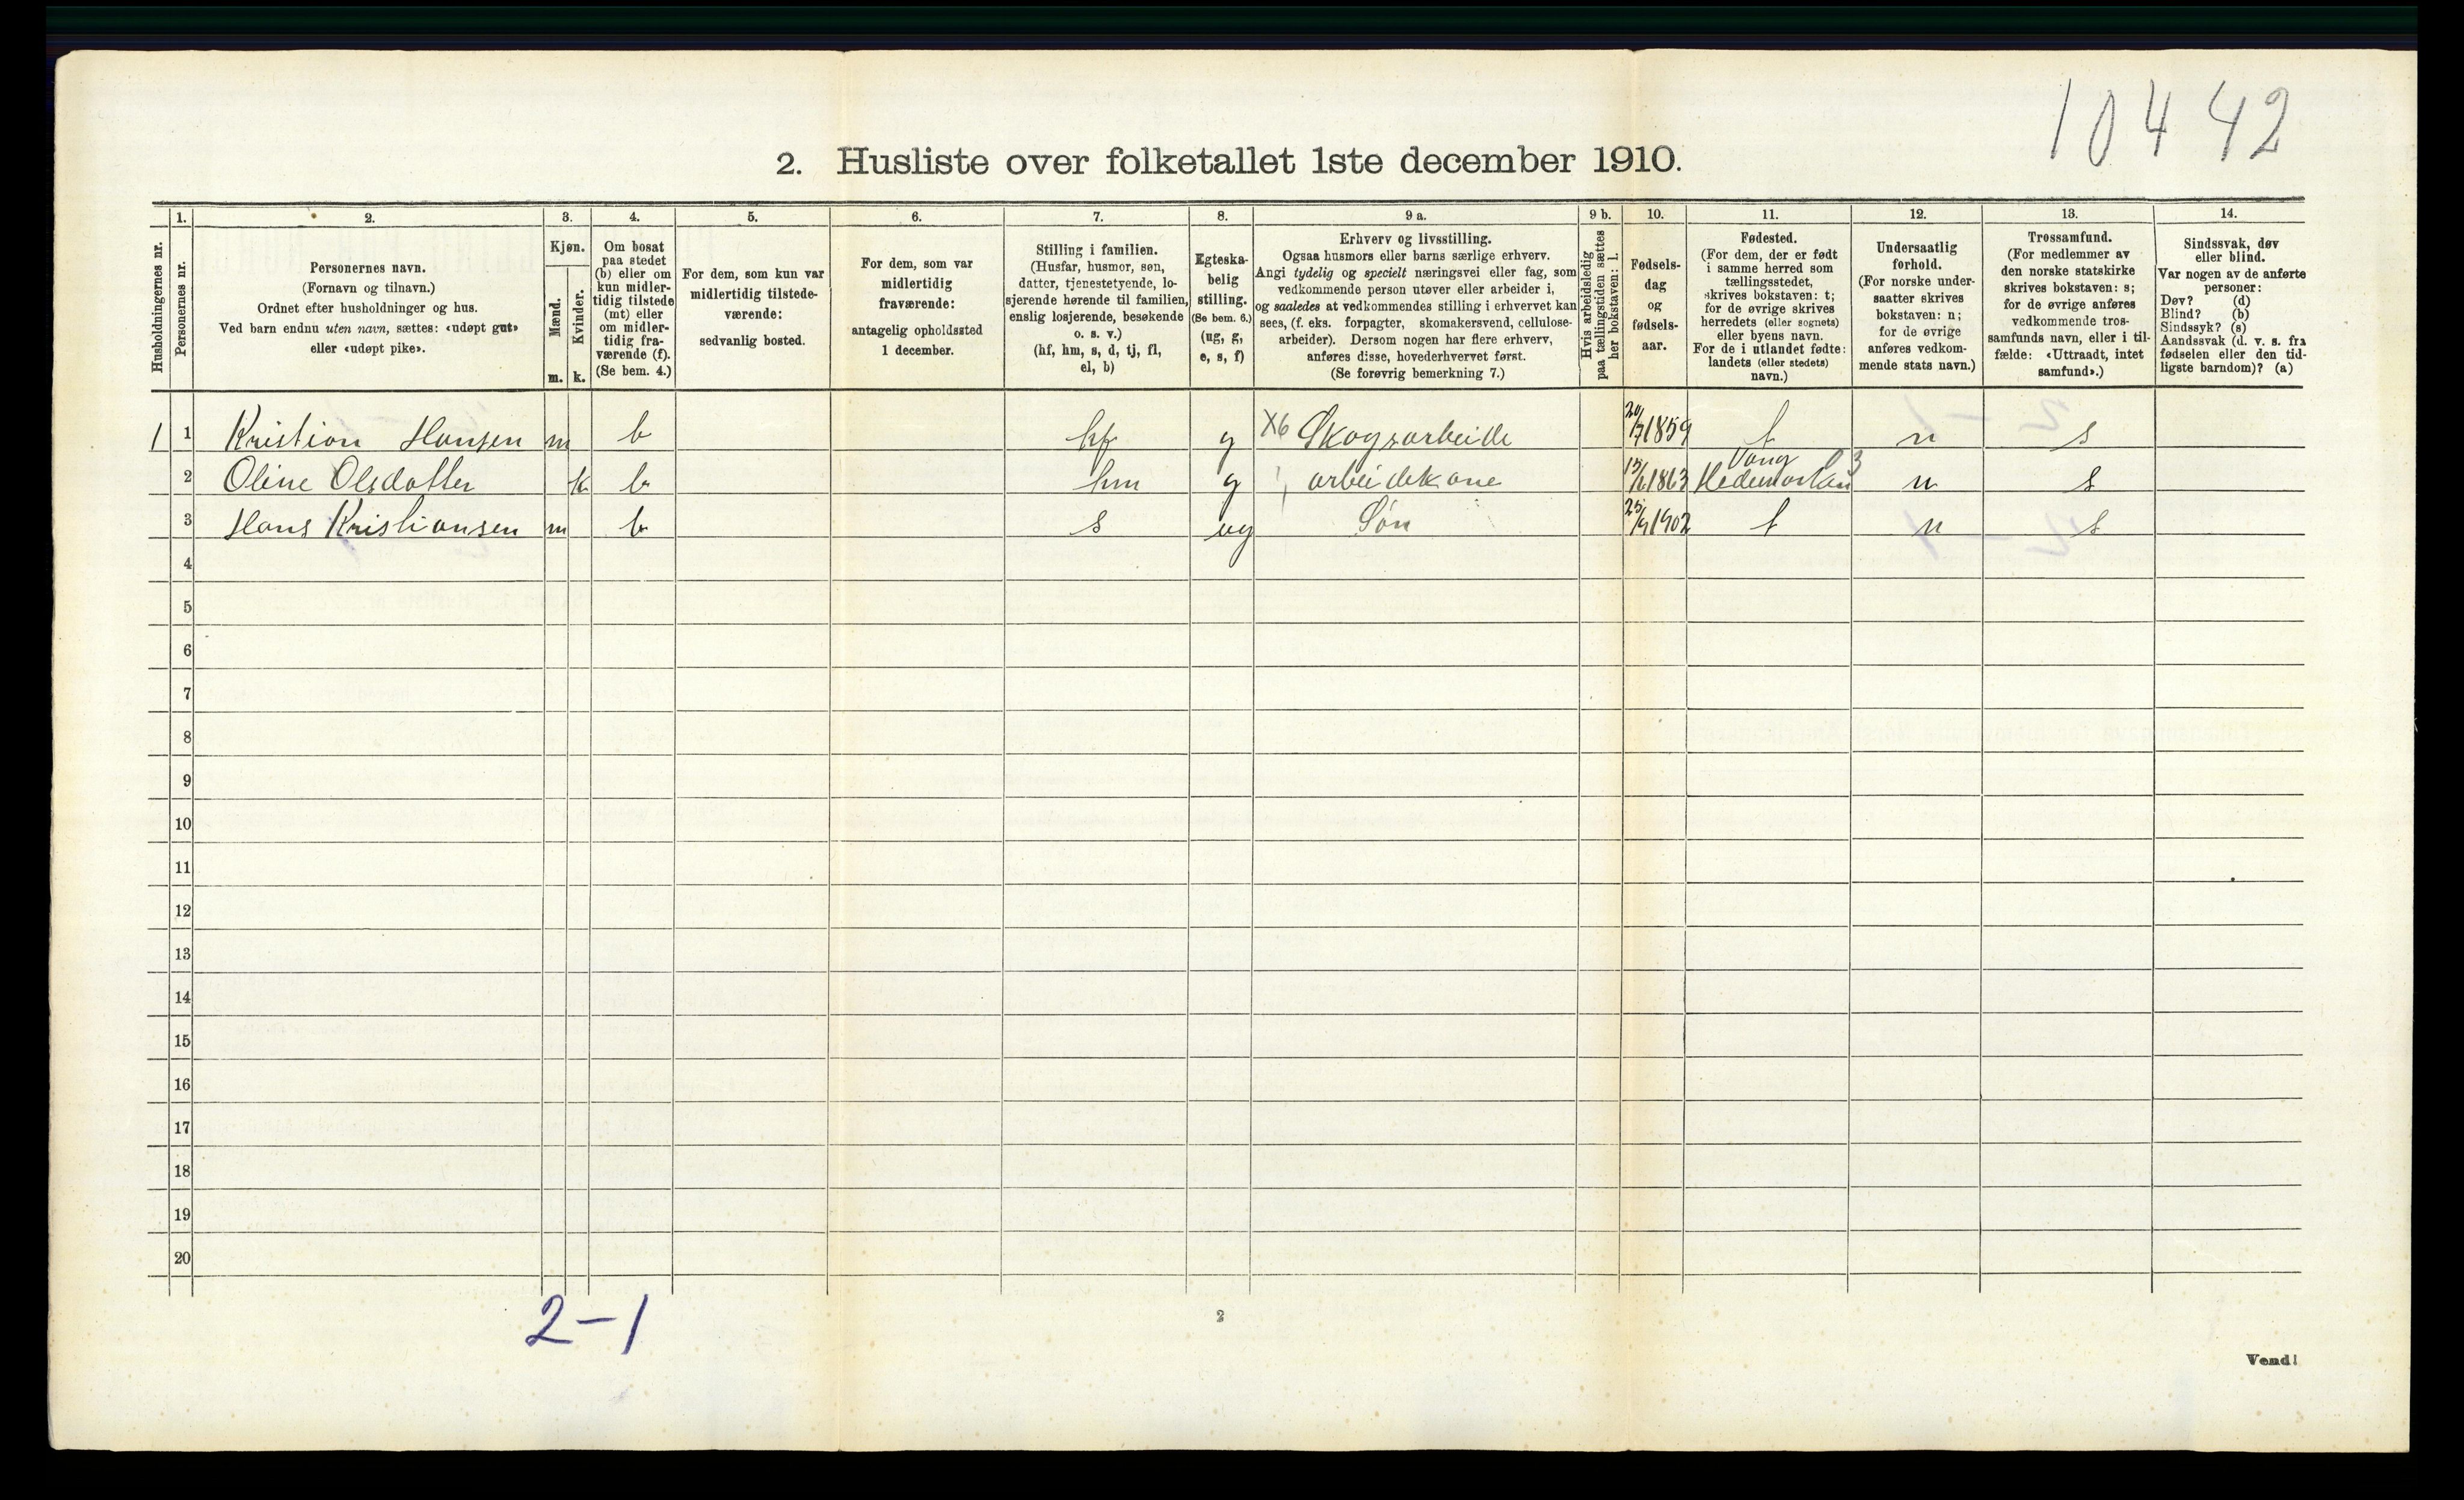 10442
2. Husliste over folketallet 1ste december 1910.
Husholdningernes nr.
1.
Personernes nr.
2.
Personernes navn.
(Fornavn og tilnavn.)
Ordnet efter husholdninger og hus.
Ved barn endnu uten navn, sættes: «udøpt gut»
eller «udøpt pike».
3.
Kjøn.
Mænd.
Kvinder.
m. k.
4.
Om bosat
paa stedet
(b) eller om
kun midler-
tidig tilstede
(mt) eller
om midler-
tidig fra-
værende (f).
(Se bem. 4.)
5.
For dem, som kun var
midlertidig tilstede-
værende:
sedvanlig bosted.
6.
For dem, som var
midlertidig
fraværende:
antagelig opholdssted
1 december.
7.
Stilling i familien.
(Husfar, husmor, søn,
datter, tjenestetyende, lo-
sjerende hørende til familien,
enslig losjerende, besøkende
o. s. v.)
(hf, hm, s, d, tj, fl,
el, b)
8.
Egteska-
belig
stilling.
(Se bem. 6.)
(ug, g,
e, s, f)
9 a.
Erhverv og livsstilling.
Ogsaa husmors eller barns særlige erhverv.
Angi tydelig og specielt næringsvei eller fag, som
vedkommende person utøver eller arbeider i,
og saaledes at vedkommendes stilling i erhvervet kan
sees, (f. eks. forpagter, skomakersvend, cellulose-
arbeider). Dersom nogen har flere erhverv,
anføres disse, hovederhvervet først.
(Se forøvrig bemerkning 7.)
9 b.
Hvis arbeidsledig
paa tællingstiden sættes
her bokstaven: l.
10.
Fødsels-
dag
og
fødsels-
aar.
11.
Fødested.
(For dem, der er født
i samme herred som
tællingsstedet,
skrives bokstaven: t;
for de øvrige skrives
herredets (eller sognets)
eller byens navn.
For de i utlandet fødte:
landets (eller stedets)
navn.)
12.
Undersaatlig
forhold.
(For norske under-
saatter skrives
bokstaven: n;
for de øvrige
anføres vedkom-
mende stats navn.)
13.
Trossamfund.
(For medlemmer av
den norske statskirke
skrives bokstaven: s;
for de øvrige anføres
vedkommende tros-
samfunds navn, eller i til-
fælde: «Uttraadt, intet
samfund».)
14.
Sindssvak, døv
eller blind.
Var nogen av de anførte
personer:
Døv? (d)
Blind? (b)
Sindssyk? (s)
Aandssvak (d. v. s. fra
fødselen eller den tid-
ligste barndom)? (a)
1 1 Kristian Hansen m b hf g X6 Skogsarbeide 20/7 1859 t n s
2 Oline Olsdatter k b hm g arbeidskone 1863 Vang Hedemarken 03 n s
3 Hans Kristiansen m b s ug Søn 25/9 1902 t n s
4
5
6
7
8
9
10
11
12
13
14
15
16
17
18
19
20
2-1
2
Vend!